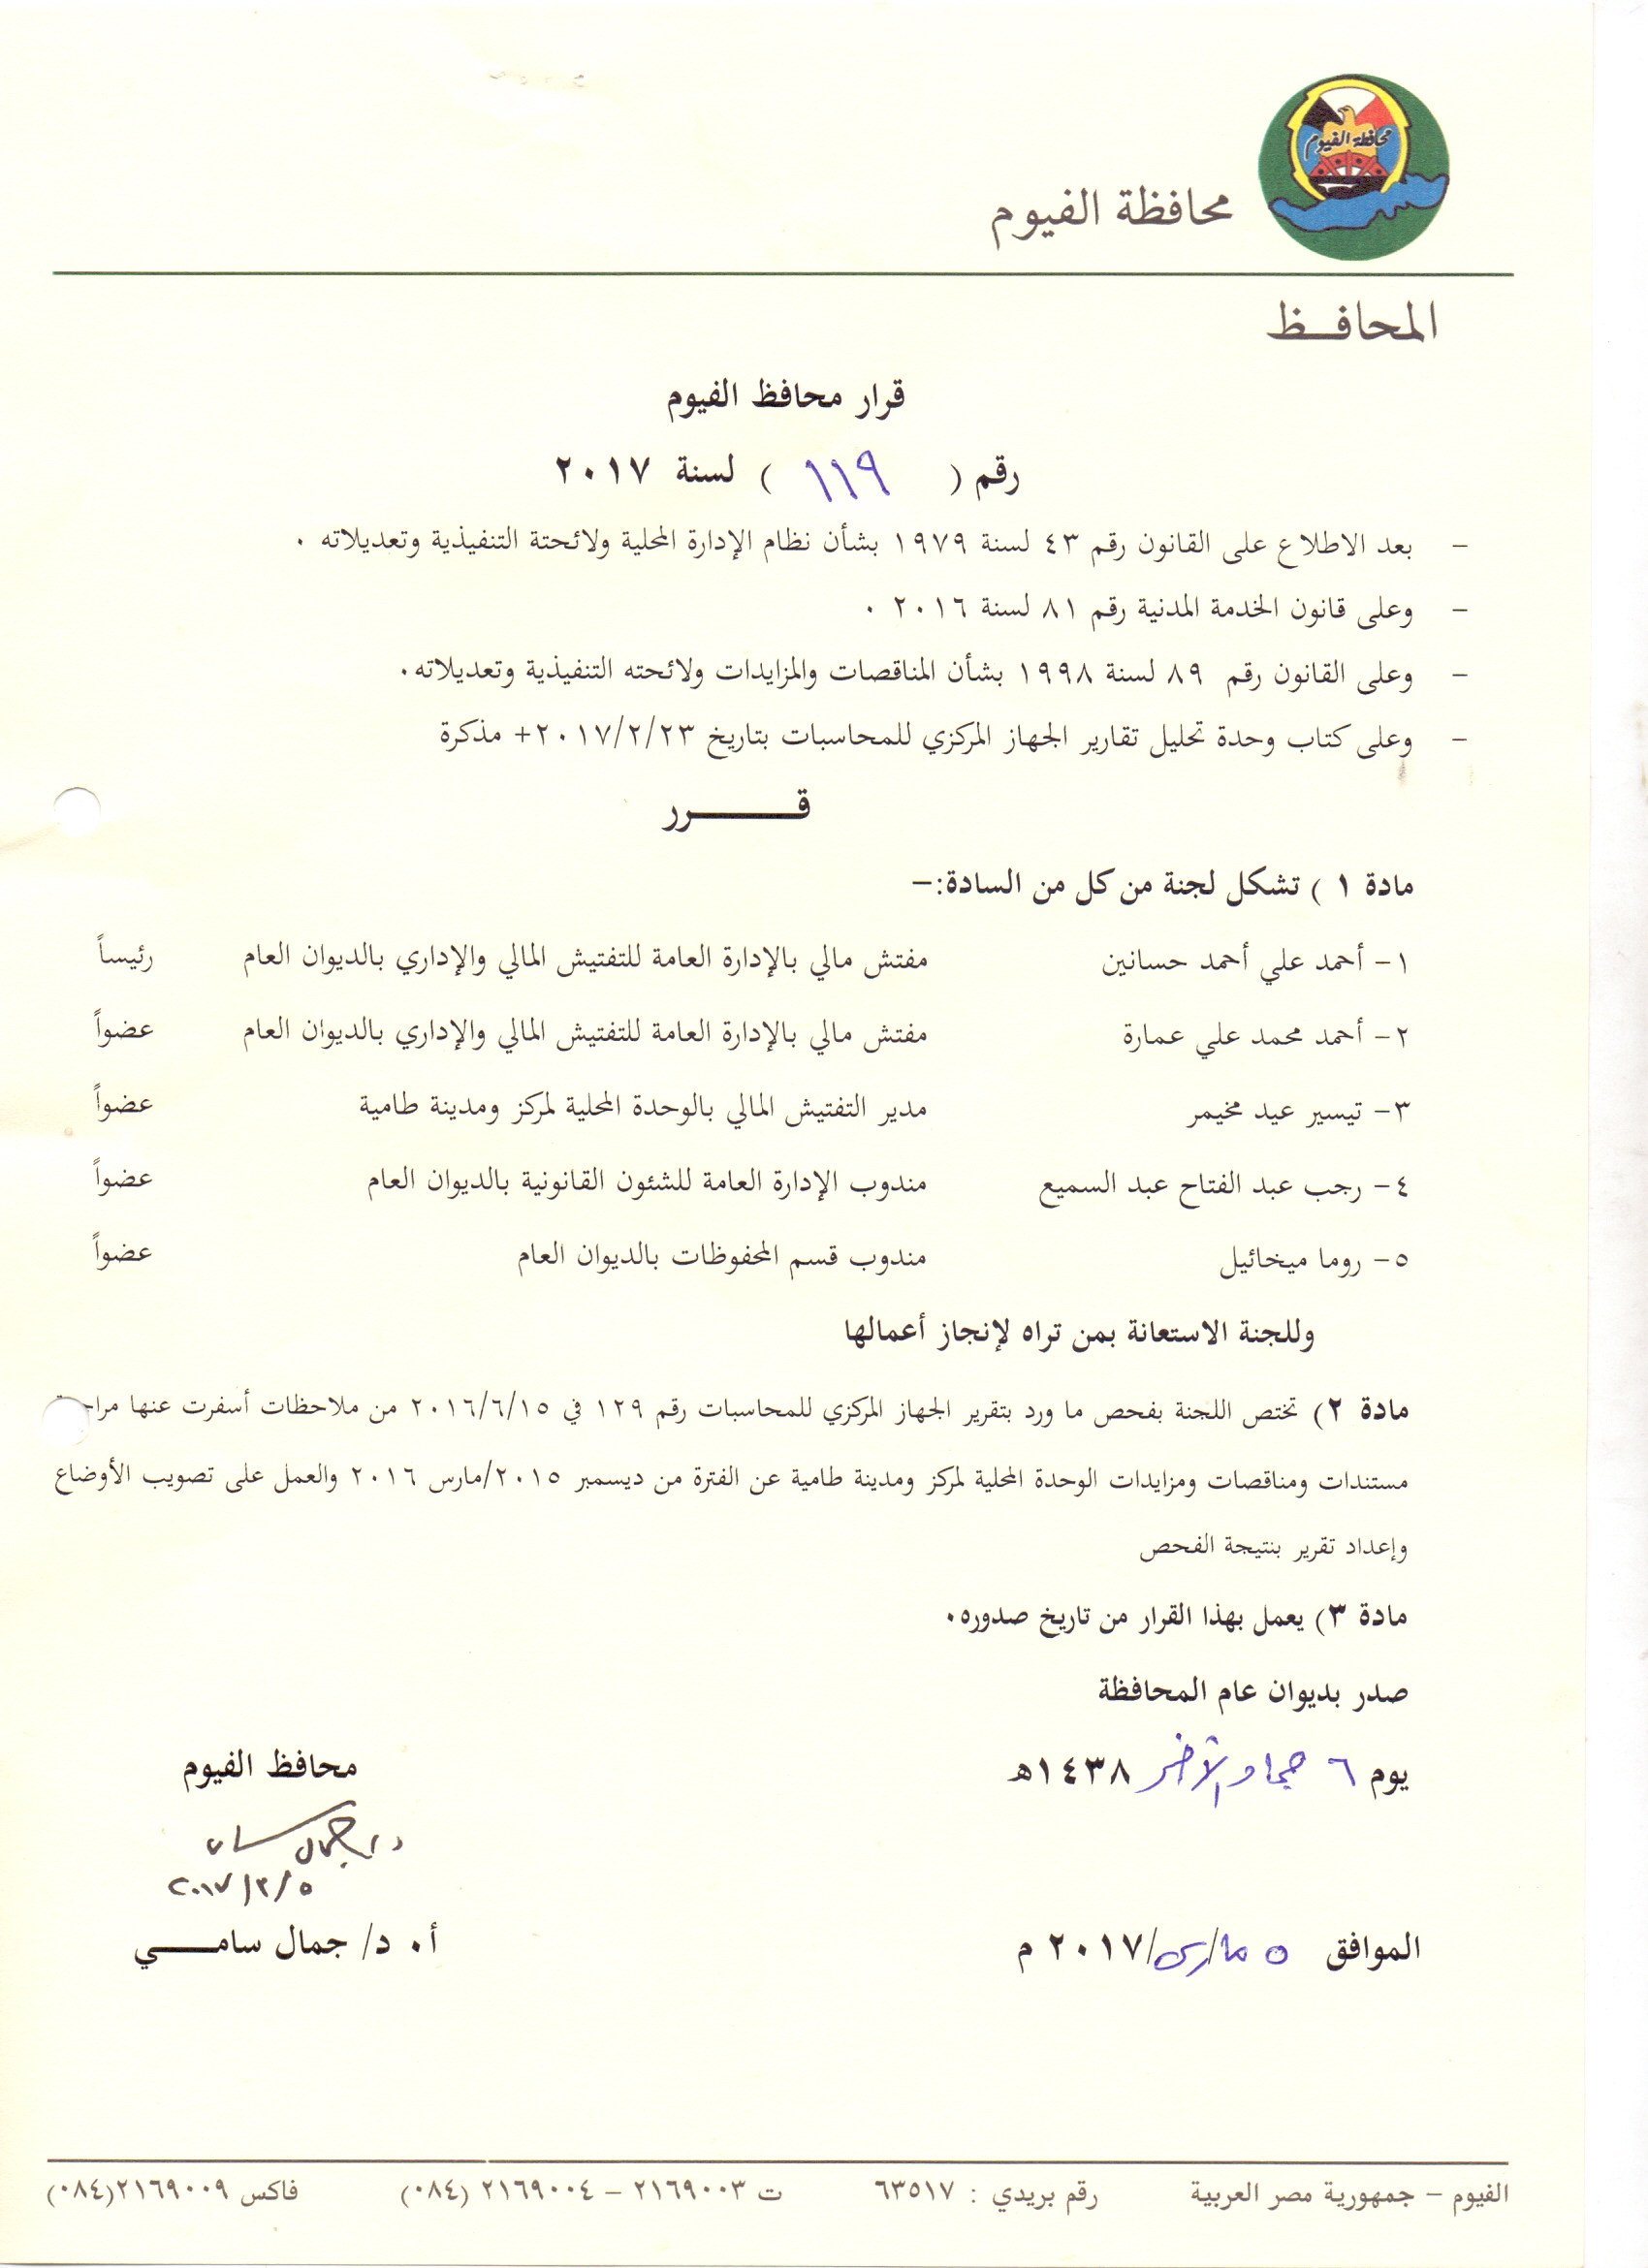 محافظة الفيوم
محافظة الفيوم
المحافـــظ
قرار محافظ الفيوم
رقم ( ١١٩ ) لسنة ٢٠١٧
- بعد الاطلاع على القانون رقم ٤٣ لسنة ١٩٧٩ بشأن نظام الإدارة المحلية ولائحتة التنفيذية وتعديلاته ٠
- وعلى قانون الخدمة المدنية رقم ٨١ لسنة ٢٠١٦ ٠
- وعلى القانون رقم ٨٩ لسنة ١٩٩٨ بشأن المناقصات والمزايدات ولائحته التنفيذية وتعديلاته٠
- وعلى كتاب وحدة تحليل تقارير الجهاز المركزي للمحاسبات بتاريخ ٢٠١٧/٢/٢٣+ مذكرة
قـــــــرر
مادة ١ ) تشكل لجنة من كل من السادة:-
١- أحمد علي أحمد حسانين مفتش مالي بالإدارة العامة للتفتيش المالي والإداري بالديوان العام رئيساً
٢- أحمد محمد علي عمارة مفتش مالي بالإدارة العامة للتفتيش المالي والإداري بالديوان العام عضواً
٣- تيسير عيد مخيمر مدير التفتيش المالي بالوحدة المحلية لمركز ومدينة طامية عضواً
٤- رجب عبد الفتاح عبد السميع مندوب الإدارة العامة للشئون القانونية بالديوان العام عضواً
٥- روما ميخائيل مندوب قسم المحفوظات بالديوان العام عضواً
وللجنة الاستعانة بمن تراه لإنجاز أعمالها
مادة ٢) تختص اللجنة بفحص ما ورد بتقرير الجهاز المركزي للمحاسبات رقم ١٢٩ في ٢٠١٦/٦/١٥ من ملاحظات أسفرت عنها
مستندات ومناقصات ومزايدات الوحدة المحلية لمركز ومدينة طامية عن الفترة من ديسمبر ٢٠١٥/مارس ٢٠١٦ والعمل على تصويب الأوضاع
وإعداد تقرير بنتيجة الفحص
مادة ٣) يعمل بهذا القرار من تاريخ صدوره٠
صدر بديوان عام المحافظة
يوم ٦ جماد الآخر ١٤٣٨هـ
محافظ الفيوم
د/ جمال سامي
٢٠١٧/٣/٥
الموافق ٥ مارس/٢٠١٧ م
أ٠ د/ جمال سامـــــي
الفيوم - جمهورية مصر العربية رقم بريدي : ٦٣٥١٧ ت ٢١٦٩٠٠٣ - ٢١٦٩٠٠٤ (٠٨٤) فاكس ٢١٦٩٠٠٩(٠٨٤)